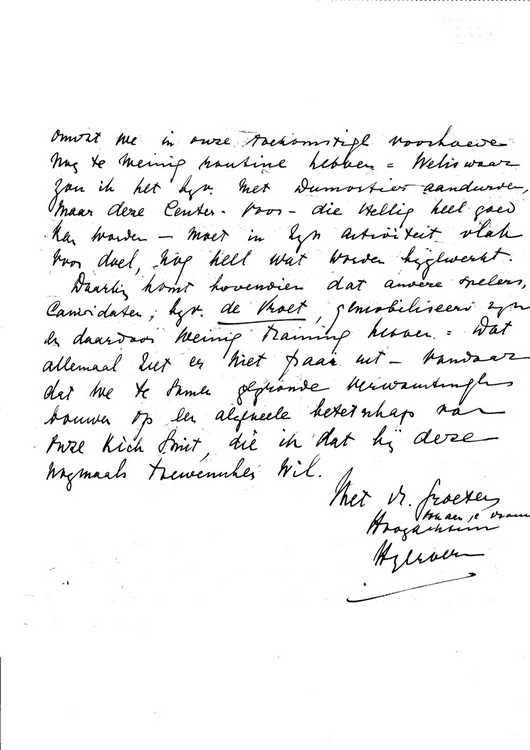 omdat we in onze toekomstige voorhoede
nog te weinig routine hebben = Weliswaar
zou ik het bijv. met Dumortier aandurven,
maar deze Center-Voor - die stellig heel goed
kan worden - moet in zijn activiteit vlak
voor doel, nog heel wat worden bijgewerkt.
Daarbij komt bovendien dat andere spelers,
Candidaten, bijv. de Vroet, gemobiliseerd zijn
en daardoor weinig training hebben = Wat
allemaal ziet er niet fraai uit - Vandaar
dat we te samen gegronde verwachtingen
bouwen op een algeheele beterschap van
onze Kick Smit, die ik dat bij deze
nogmaals toewenschen wil.
Met vr. Groeten
Hoogachtend